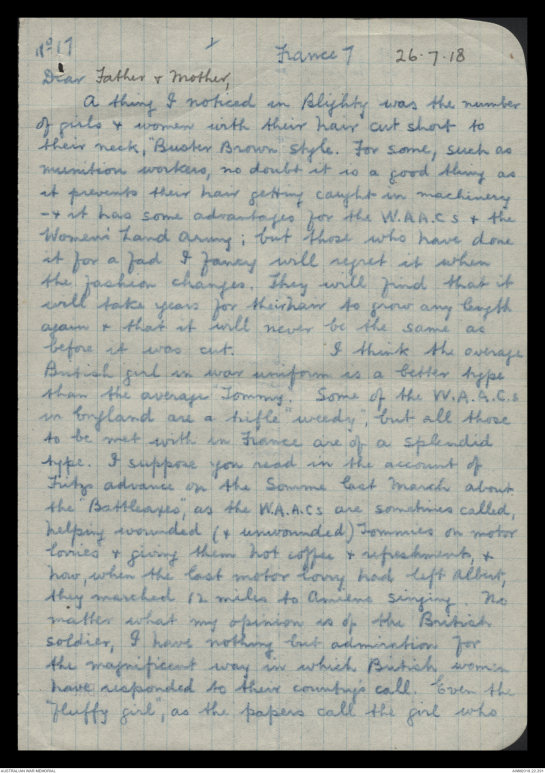 No 17 1 France 7 26.7.18
Dear Father & Mother,
A thing I noticed in Blighty was the number
of girls & women with their hair cut short to
their neck, "Buster Brown" style. For some, such as
munition workers, no doubt it is a good thing as
it prevents their hair getting caught in machinery
- & it has some advantages for the W.A.A.C.s & the
Women's Land Army; but those who have done
it for a fad I fancy will regret it when
the fashion changes. They will find that it
will take years for their hair to grow any length
again & that it will never be the same as
before it was cut. I think the average
British girl in war uniform is a better type
than the average Tommy. Some of the W.A.A.C.s
in England are a trifle "weedy", but all those
to be met with in France are of a splendid
type. I suppose you read in the account of
Fritz's advance on the Somme last March about
the "Battleaxes", as the W.A.A.Cs are sometimes called,
helping wounded (& unwounded) Tommies on motor
lorries & giving them hot coffee & refreshments, &
how, when the last motor lorry had left Albert,
they marched 12 miles to Amiens singing. No
matter what my opinion is of the British
soldier, I have nothing but admiration for
the magnificent way in which British women
have responded to their country's call. Even the
"fluffy girl", as the papers call the girl who
AUSTRALIAN WAR MEMORIAL